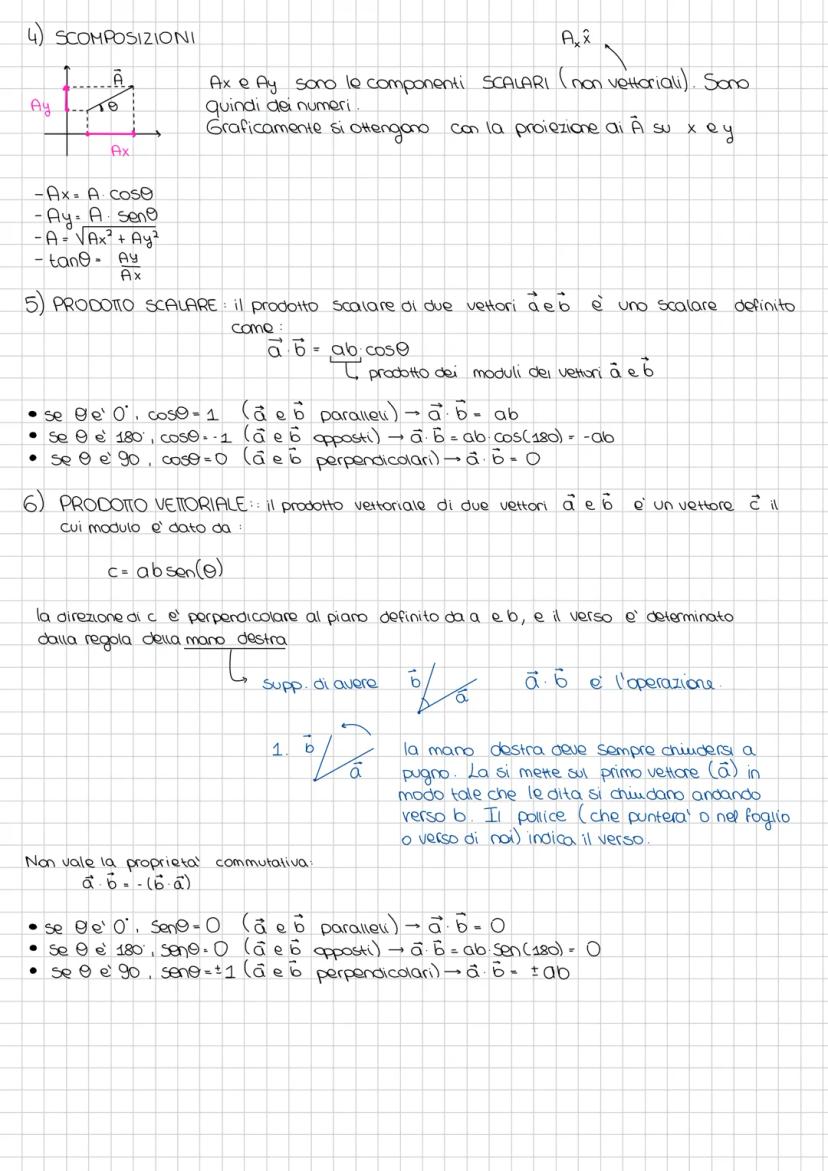 4) SCOMPOSIZIONI
Aₓ x̂
Ā
Ay
θ
Ax
Ax e Ay sono le componenti SCALARI (non vettoriali). Sono
quindi dei numeri.
Graficamente si ottengono con la proiezione di A⃗ su x e y
- Ax = A · cosθ
- Ay = A · senθ
- A = √Ax² + Ay²
- tanθ = Ay
Ax
5) PRODOTTO SCALARE : il prodotto scalare di due vettori a⃗ e b⃗ è uno scalare definito
come :
a⃗ · b⃗ = ab · cosθ
prodotto dei moduli dei vettori a⃗ e b⃗
• se θ e' 0°, cosθ = 1 (a⃗ e b⃗ paralleli) → a⃗ · b⃗ = ab
• se θ e' 180°, cosθ = -1 (a⃗ e b⃗ opposti) → a⃗ · b⃗ = ab · cos(180) = -ab
• se θ e' 90, cosθ = 0 (a⃗ e b⃗ perpendicolari) → a⃗ · b⃗ = 0
6) PRODOTTO VETTORIALE :: il prodotto vettoriale di due vettori a⃗ e b⃗ e' un vettore c⃗ il
cui modulo e' dato da :
c = absen(θ)
la direzione di c e' perpendicolare al piano definito da a e b, e il verso e' determinato
dalla regola della mano destra
supp. di avere b⃗ a⃗ a⃗ · b⃗ e' l'operazione.
1. b⃗ a⃗
la mano destra deve sempre chiudersi a
pugno. La si mette sul primo vettore (a⃗) in
modo tale che le dita si chiudano andando
verso b. Il pollice (che puntera' o nel foglio
o verso di noi) indica il verso.
Non vale la proprieta' commutativa:
a⃗ · b⃗ = -(b⃗ · a⃗)
• se θ e' 0°, senθ = 0 (a⃗ e b⃗ paralleli) → a⃗ · b⃗ = 0
• se θ e' 180°, senθ = 0 (a⃗ e b⃗ opposti) → a⃗ · b⃗ = ab · sen(180) = 0
• se θ e' 90, senθ = ±1 (a⃗ e b⃗ perpendicolari) → a⃗ · b⃗ = ±ab